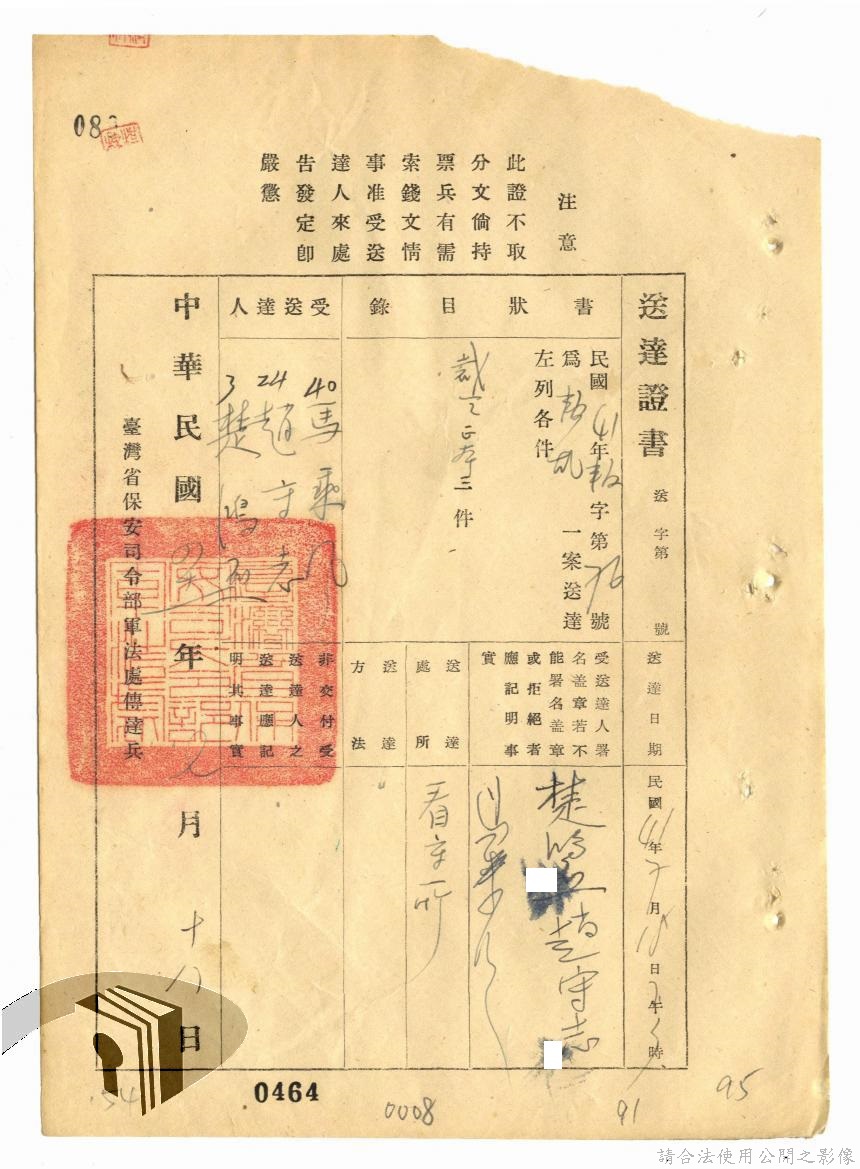 083
注意
此證不取
分文倘持
票兵有需
索錢文情
事准受送
達人來處
告發定卽
嚴懲
送達證書 送字第 號
書狀目錄
民國41年叛字第76號
爲叛亂一案送達
左列各件
裁定正本三件
受送達人
40 馬乘風
24 趙守志
3 楚鴻烈
送達日期
民國41年7月18日 午 時
受送達人署
名蓋章若不
能署名蓋章
或拒絕者
應記明事
實
楚鴻烈 趙守志
馬乘風
送達
處所
看守所
送達
方法
非交付受
送達人之
送達應記
明其事實
中華民國四一年七月十八日
臺灣省保安司令部軍法處傳達兵
54
0464
0008
91
95
請合法使用公開之影像